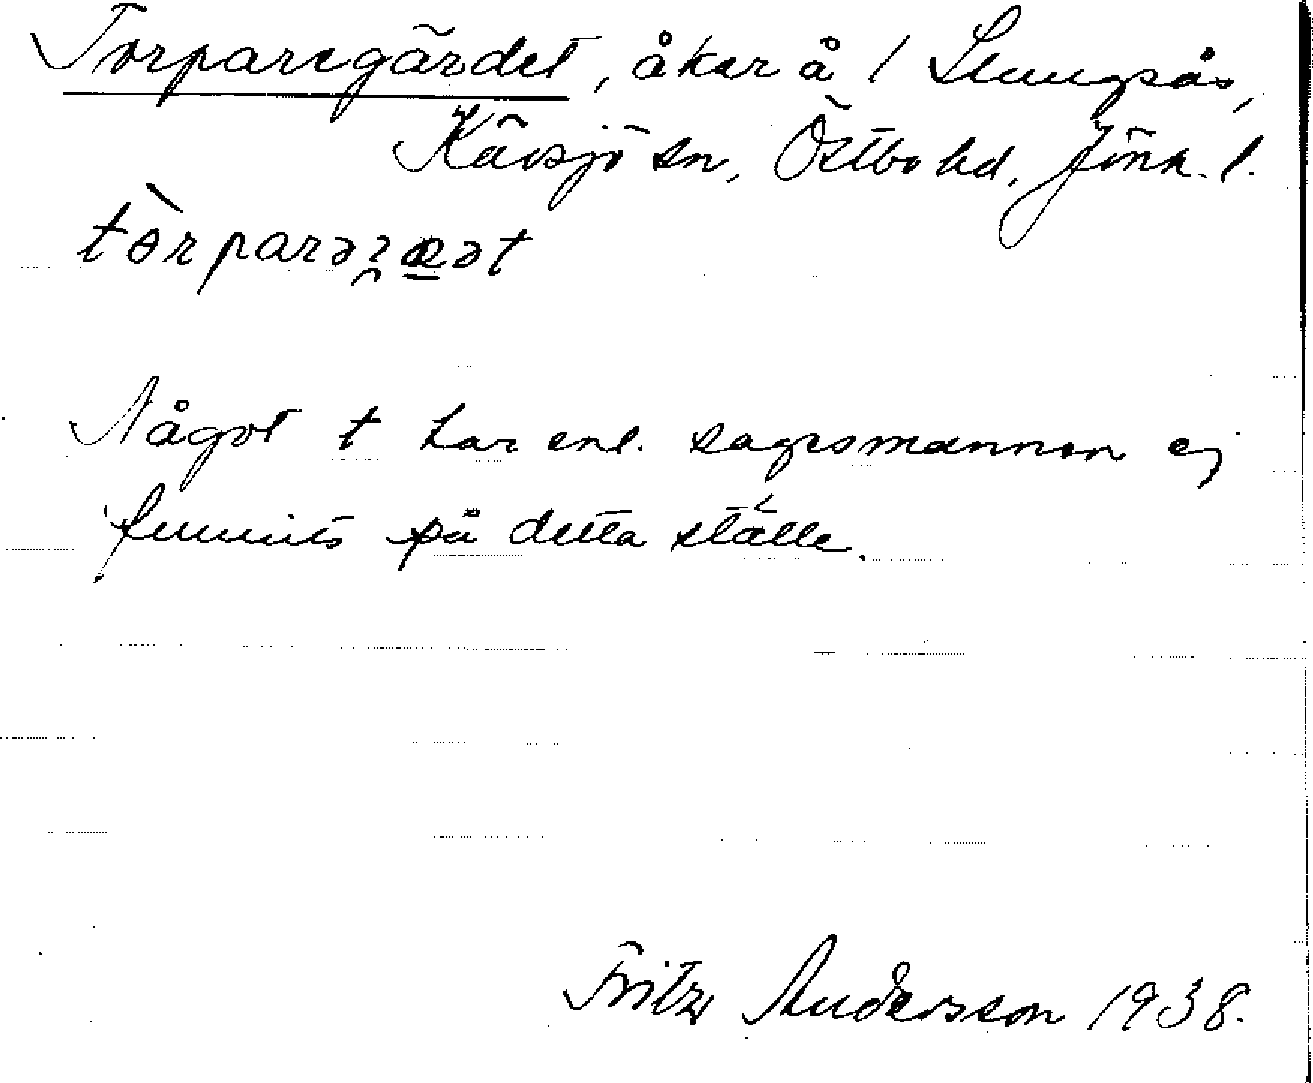 Torparegärdet, åker å 1 Slungsås,
Kävsjö sn, Östbo hd, Jönk. l.
Något t har enl. sagesmannen ej
funnits på detta ställe.
Fritz Andersson 1938.